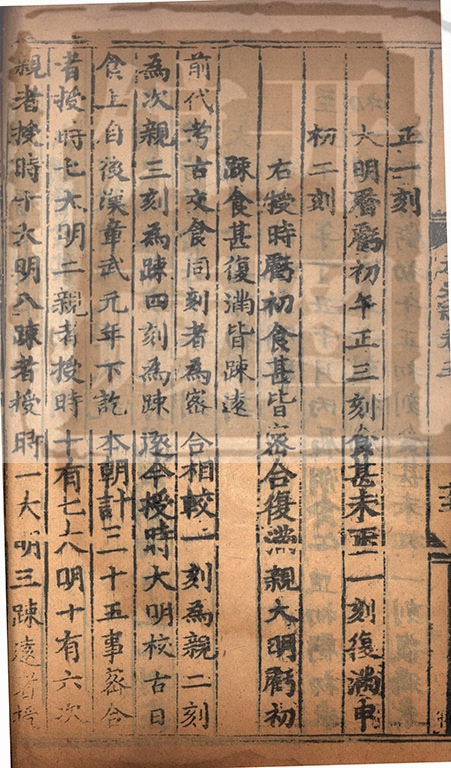 正一刻
大明曆虧初午正三刻食甚未正一刻復滿申
初二刻
右授時虧初食甚皆密合復滿親大明虧初
踈食甚復滿皆踈遠
前代考古交食同刻者為密合相較一刻為親二刻
為次親三刻為踈四刻為踈逺今授時大明校古日
食上自後漢章武元年下訖本朝計三十五事密合
者授時七大明二親者授時十有七大明十有六次
親者授時十大明八踈者授時一大明三踈逺者授